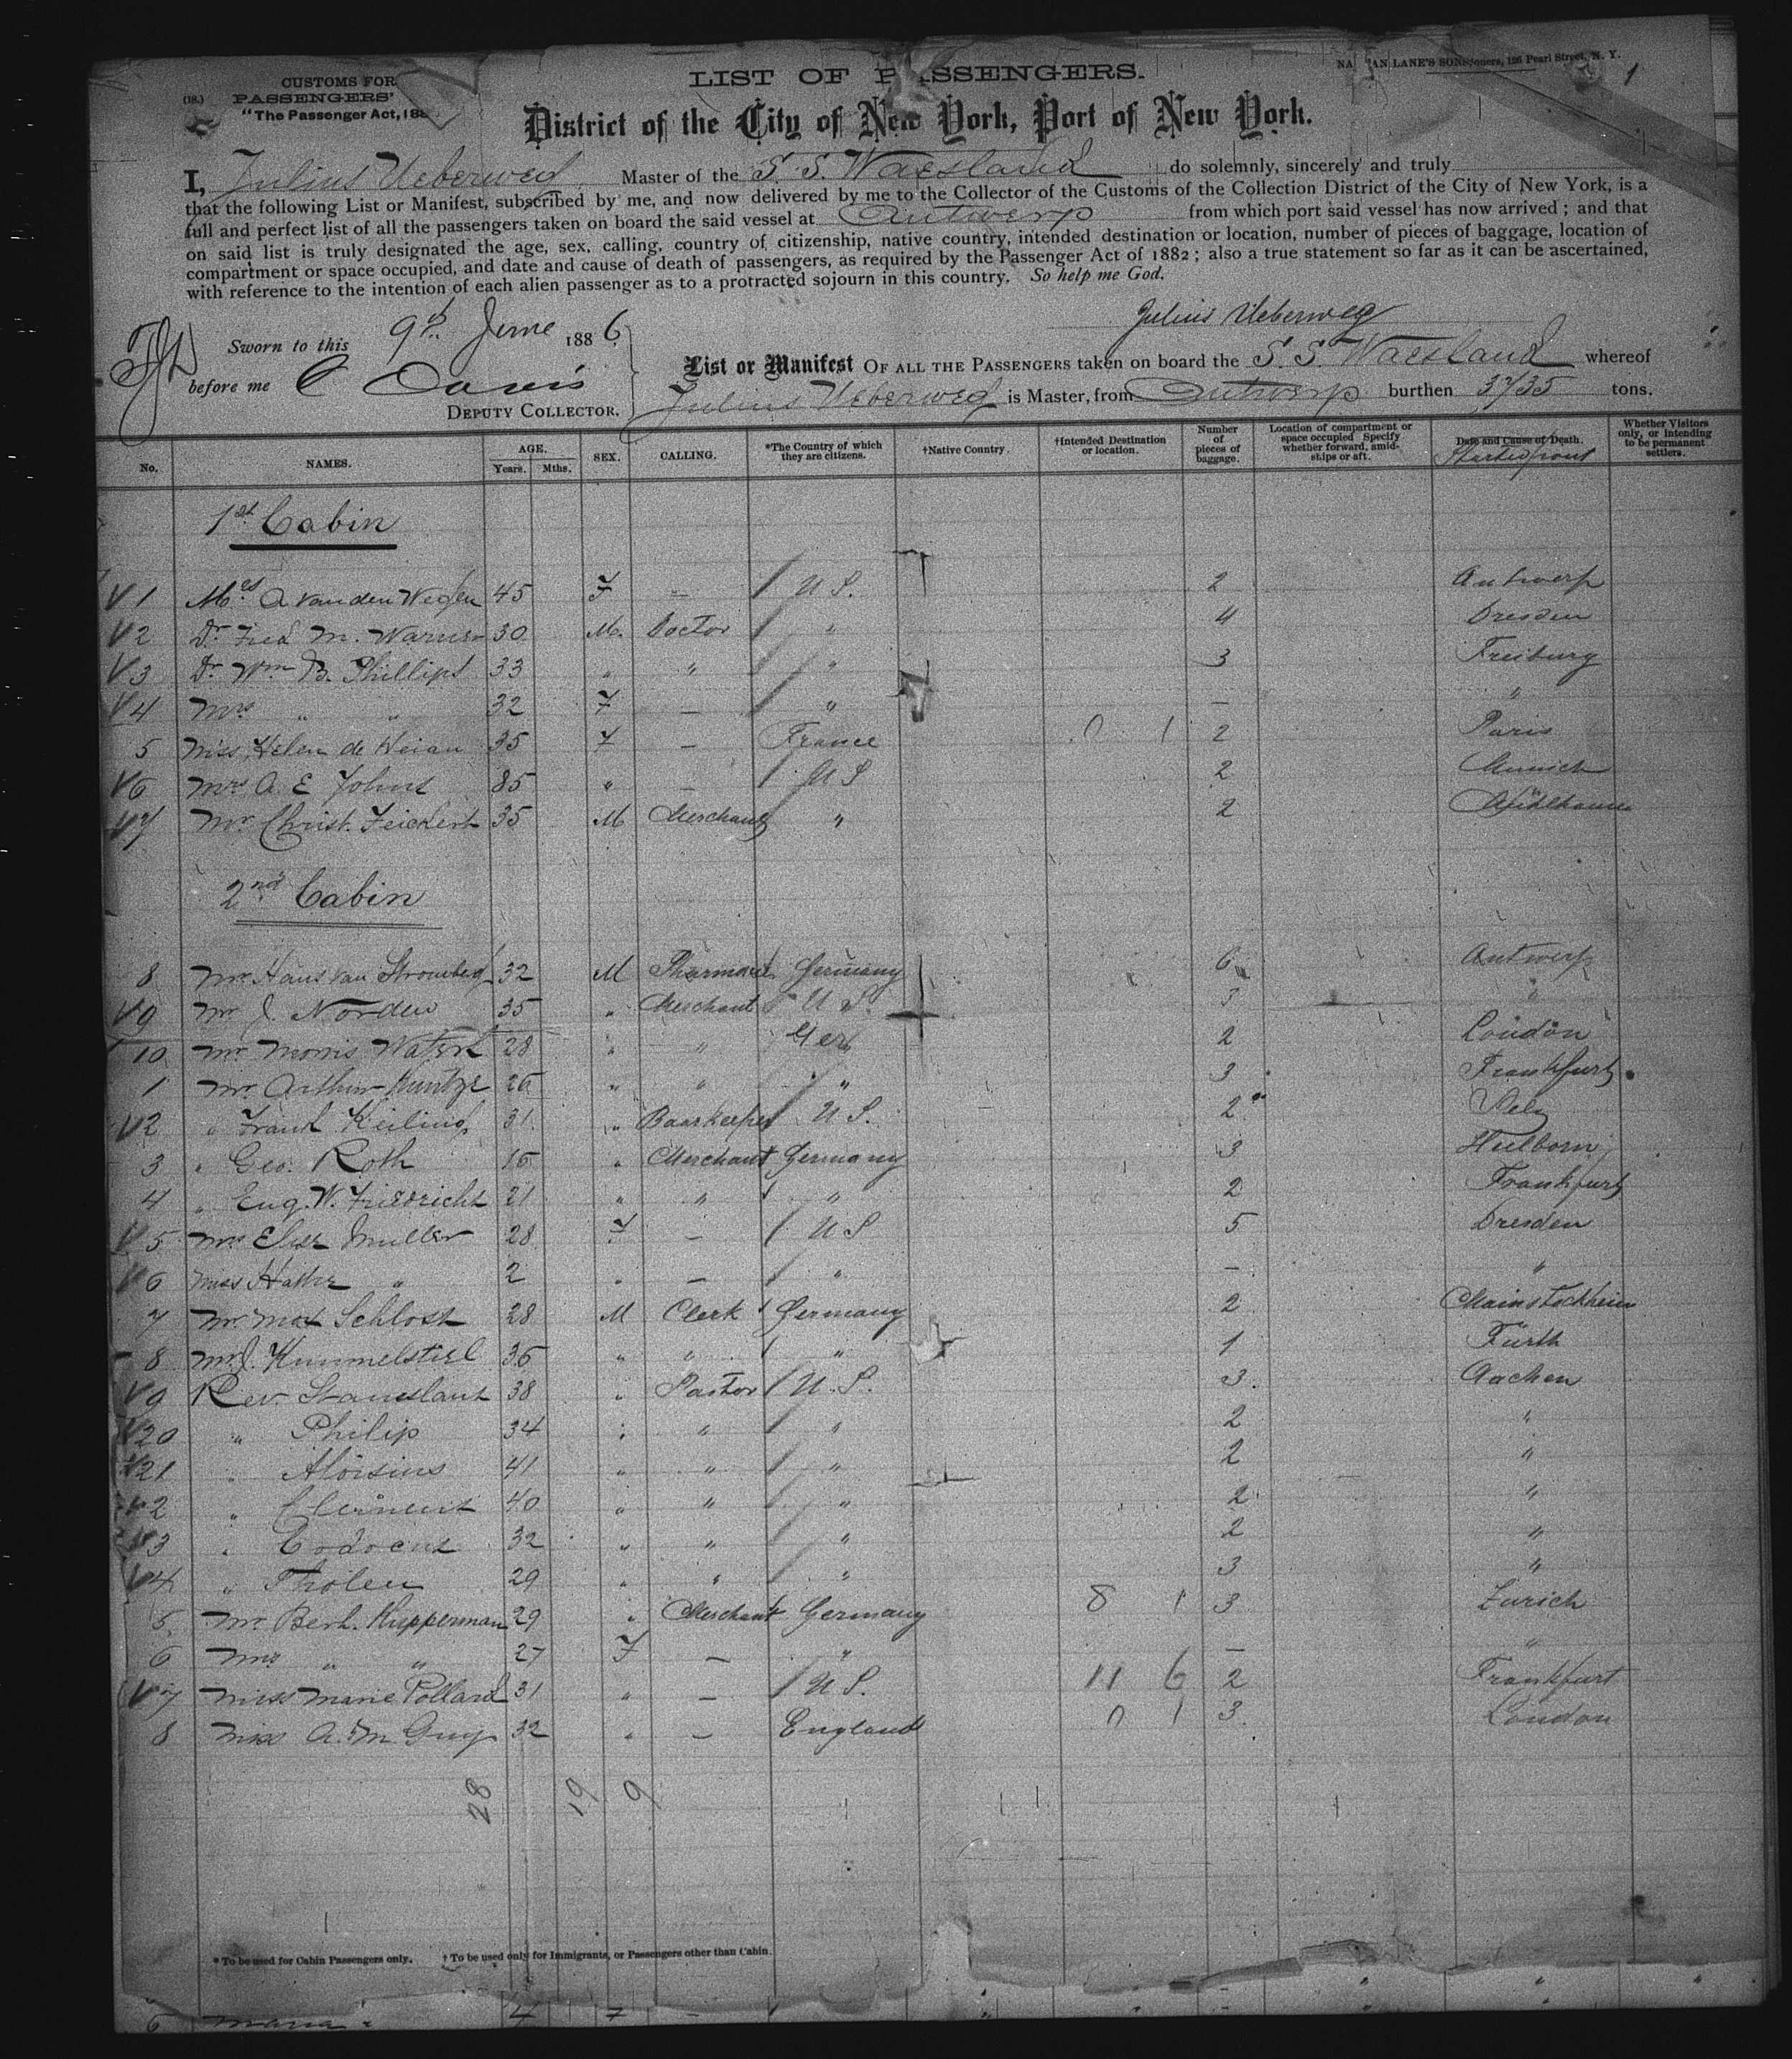 CUSTOMS FOR
PASSENGERS'
(18.)
"The Passenger Act, 188
LIST OF PASSENGERS.
LANE'S SONS, 126 Pearl Street, N. Y.
1
District of the City of New York, Port of New York.
I, Julius Ueberweg Master of the S. S. Waesland do solemnly, sincerely and truly
that the following List or Manifest, subscribed by me, and now delivered by me to the Collector of the Customs of the Collection District of the City of New York, is a
full and perfect list of all the passengers taken on board the said vessel at Antwerp from which port said vessel has now arrived; and that
on said list is truly designated the age, sex, calling, country of citizenship, native country, intended destination or location, number of pieces of baggage, location of
compartment or space occupied, and date and cause of death of passengers, as required by the Passenger Act of 1882; also a true statement so far as it can be ascertained,
with reference to the intention of each alien passenger as to a protracted sojourn in this country. So help me God.
Julius Ueberweg
Sworn to this 9th June 1886
before me C Davis
DEPUTY COLLECTOR.
List or Manifest OF ALL THE PASSENGERS taken on board the S. S. Waesland whereof
Julius Ueberweg is Master, from Antwerp burthen 3735 tons.
No. NAMES. AGE. Years. Mths. SEX. CALLING. *The Country of which they are citizens. †Native Country. †Intended Destination or location. Number of pieces of baggage. Location of compartment or space occupied Specify whether forward, amidships or aft. Date and Cause of Death. Started from Whether Visitors only, or intending to be permanent settlers.
1st Cabin
1 Mrs A van den Wegen 45 F - U S. 2 Antwerp
2 Dr Fred M. Warner 30 M. Doctor " 4 Dresden
3 Dr Wm B. Phillips 33 " " " 3 Freiburg
4 Mrs " " 32 F - " - "
5 Miss Helen de 35 F - France 0 1 2 Paris
6 Mrs A. E Johns 85 " - U S 2 Munich
7 Mr Christ. Feickert 35 M Merchant " 2 Mühlhausen
2nd Cabin
8 Mr Hans van Stromberg 32 M Pharmacist Germany 6 Antwerp
9 Mr J. Norden 35 " Merchant U S. 3 "
10 Mr Morris 28 " " Ger 2 London
1 Mr Arthur Kuntze 26 " " " 3 Frankfurt
2 " Frank Keiling 31 " Baarkeeper U S. 2
3 " Geo. Roth 16 " Merchant Germany 3 Heilbron
4 " Eug. W. Friedrichs 21 " " " 2 Frankfurt
5 Mrs Elise Muller 28 F - U S 5 Dresden
6 Miss " 2 " - " - "
7 Mr Max Schloss 28 M Clerk Germany 2 Mainstockheim
8 Mr J. Kummelstiel 36 " " " 1 Fürth
9 Rev. Stanislaus 38 " Pastor U. S. 3. Aachen
20 " Philip 34 " " " 2 "
21 " Aloisius 41 " " " 2 "
2 " Clemens 40 " " " 2 "
3 " 32 " " " 2 "
4 " Tholen 29 " " " 3 "
5 Mr Berh. Kupperman 29 " Merchant Germany 8 1 3 Zurich
6 Mrs " " 27 F - " - "
7 Miss Marie Pollard 31 " - U S. 11 6 2 Frankfurt
8 Miss A. M. Guy 32 " - England 0 1 3. London
28 19 9
* To be used for Cabin Passengers only. † To be used only for Immigrants, or Passengers other than Cabin.
6 Maria " 4 F -